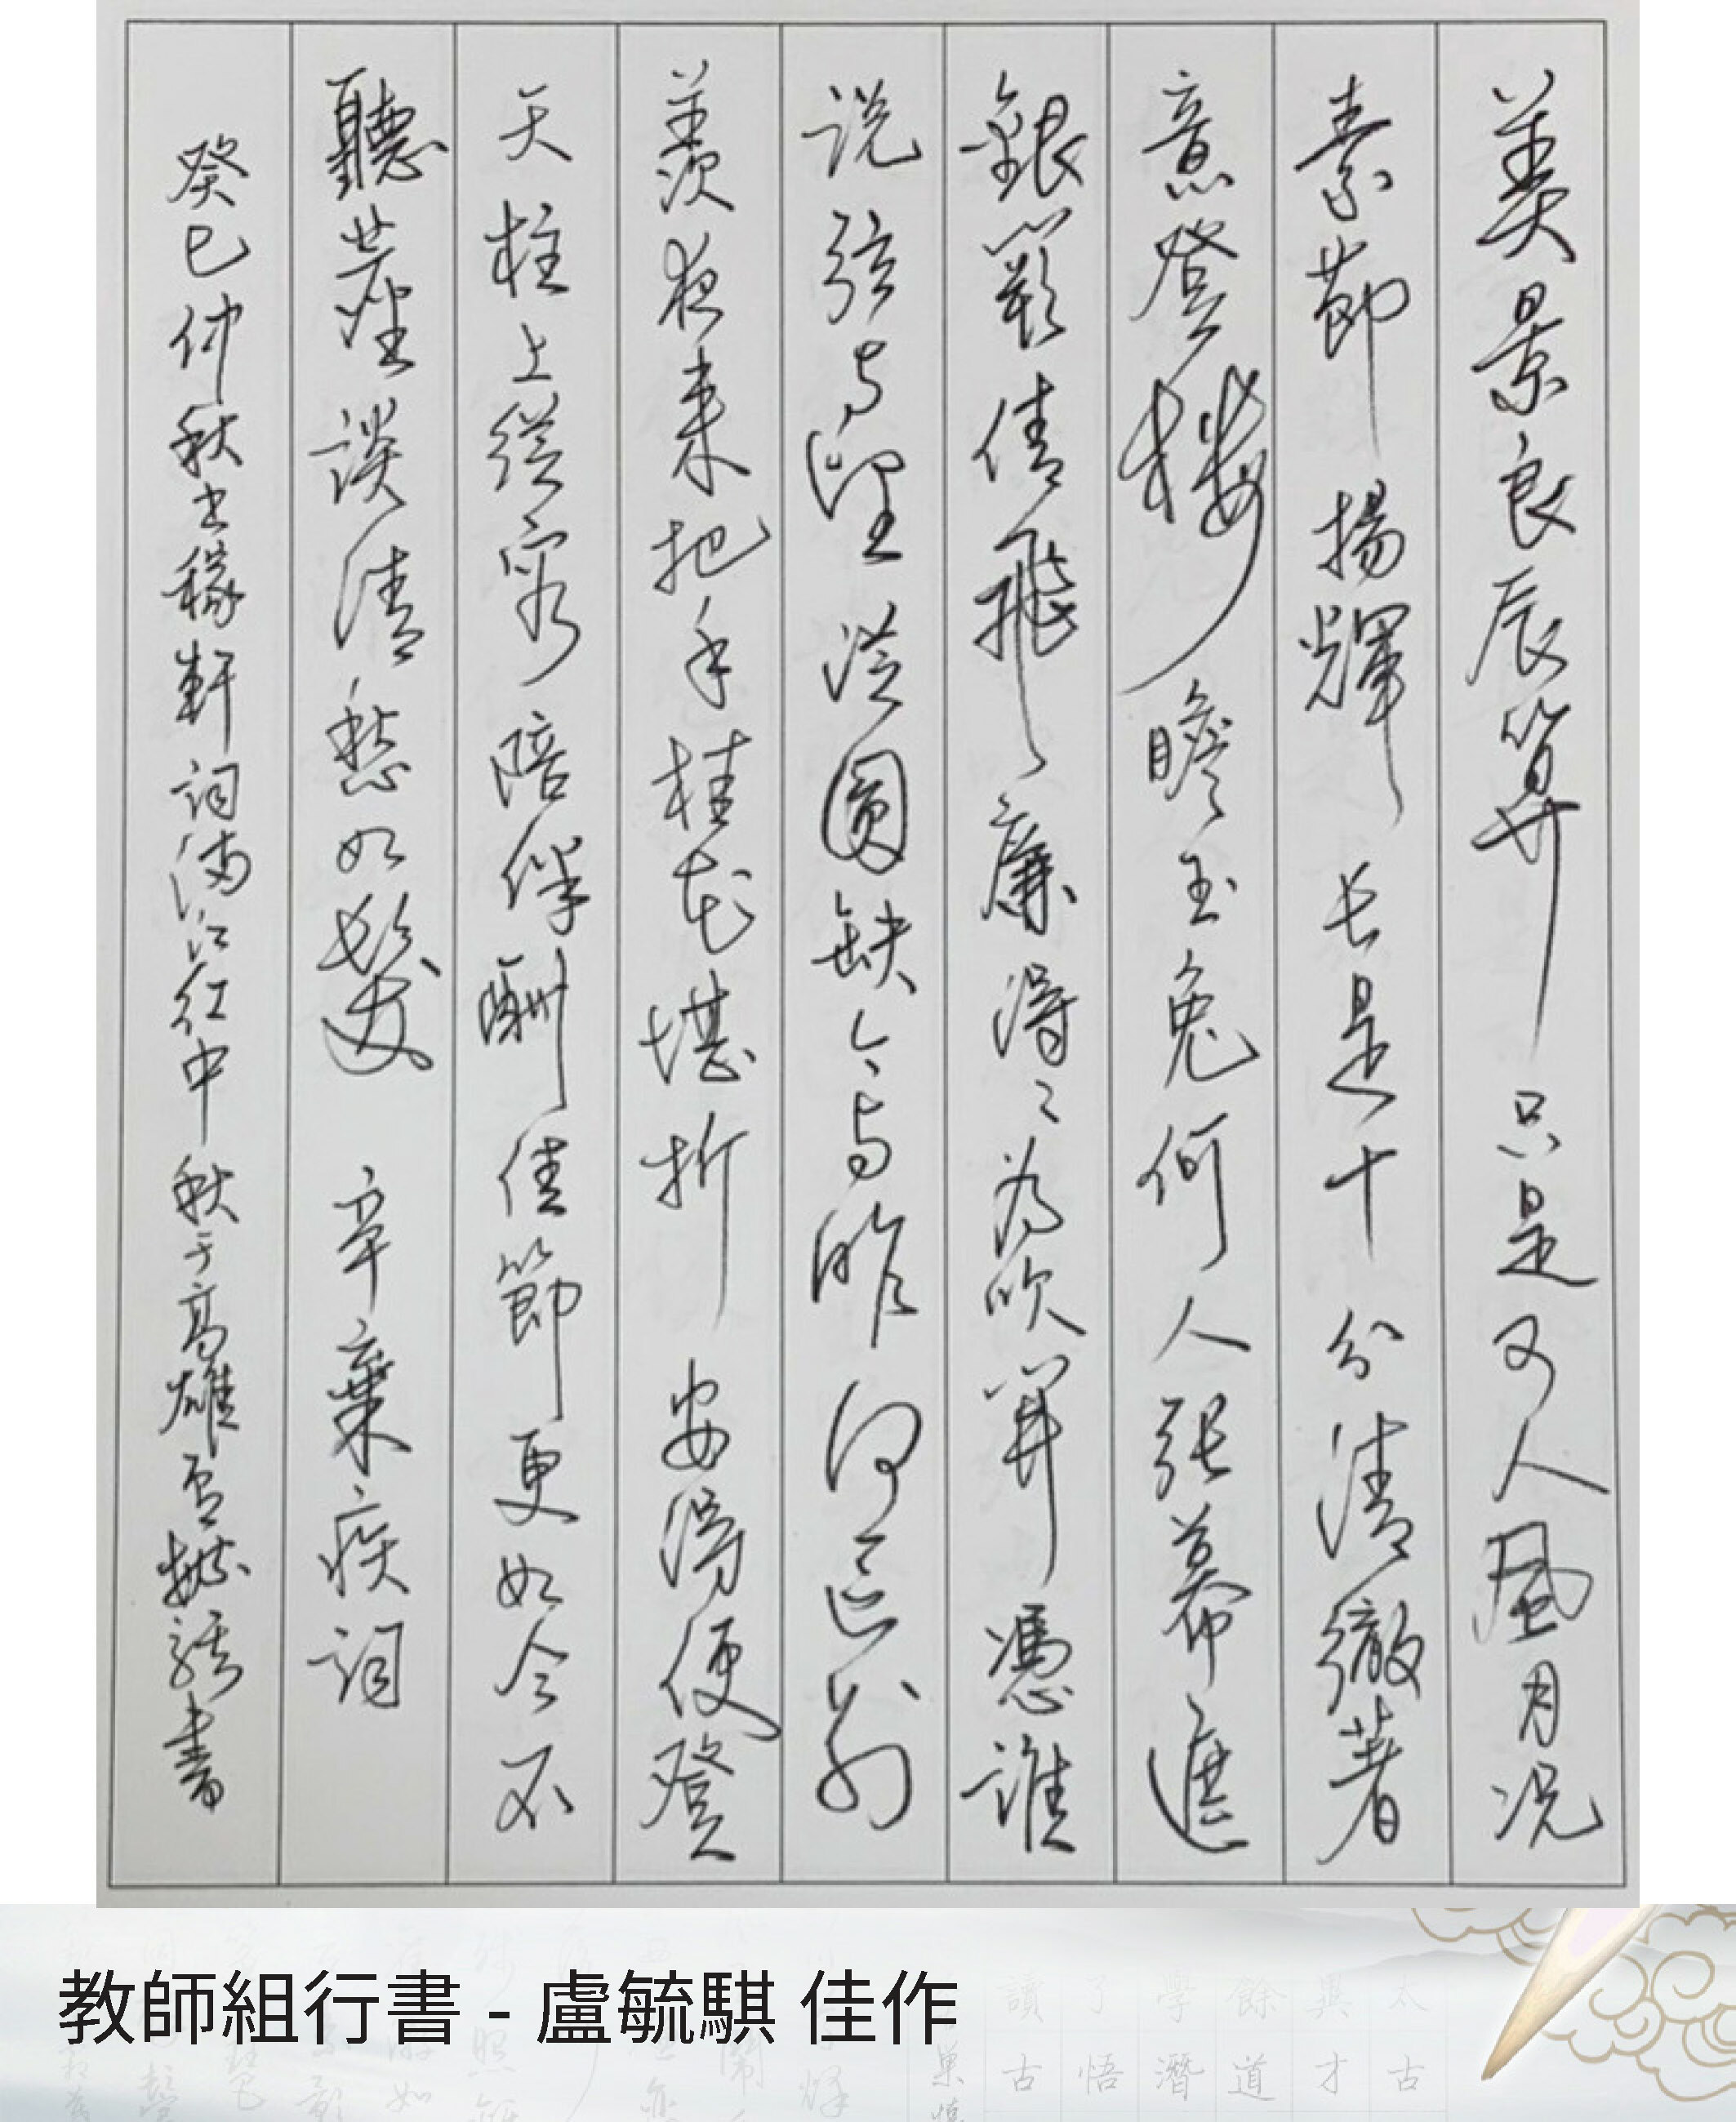 美景良辰算只是可人風月況
素節揚輝長是十分清徹著
意登樓瞻玉兔何人張幕遮
銀闕倩飛廉得得為吹開憑誰
說弦與望從圓缺今與昨何區別
羨夜來把手桂花堪折安得便登
天柱上從容陪伴酬佳節更如今不
聽塵談清愁如髮 辛棄疾詞
癸巳仲秋書稼軒詞滿江紅中秋于高雄盧毓騏書
教師組行書 - 盧毓騏 佳作